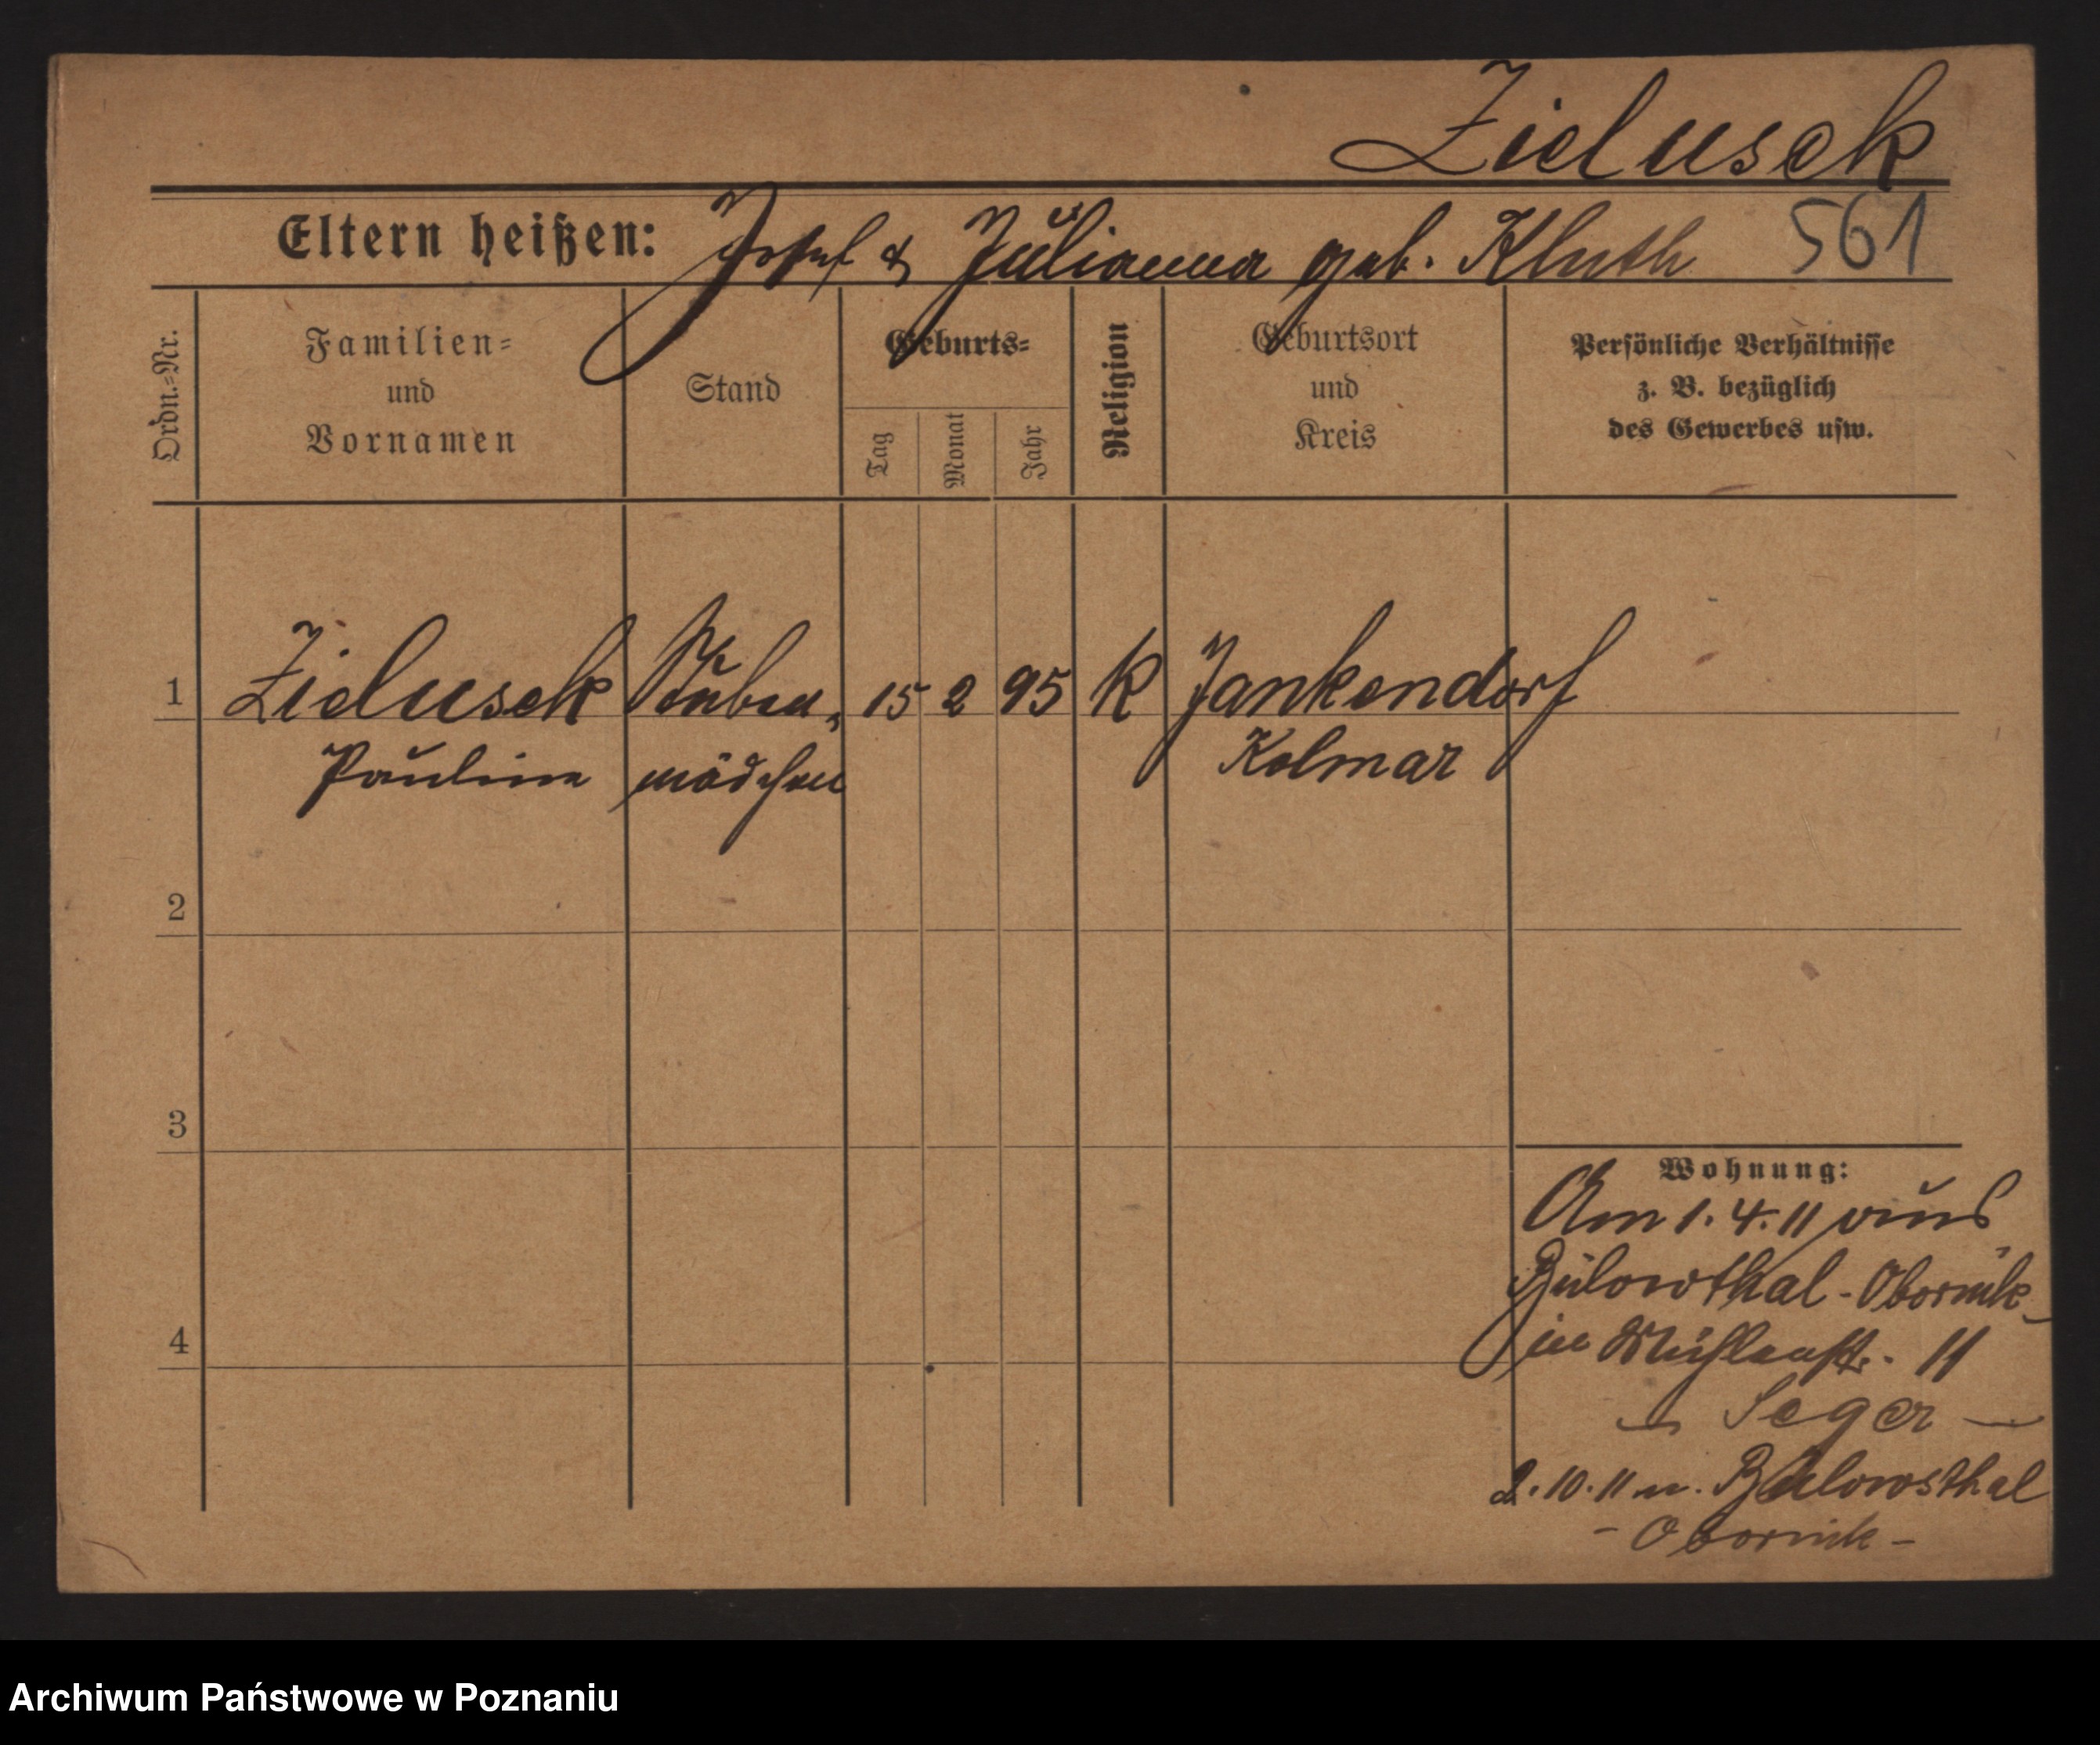 Zielusek
Eltern heißen: Josef & Julianna geb. Kluth 561
Ordn.=Nr.
Familien=
und
Vornamen
Stand
Geburts=
Tag
Monat
Jahr
Religion
Geburtsort
und
Kreis
Persönliche Verhältnisse
z. B. bezüglich
des Gewerbes usw.
1 Zielusek Stuben= 15 2 95 K Jankendorf
Pauline mädchen Kolmar
2
3
4
Wohnung:
Am 1.4.11 aus
Bülowthal-Obornik
in Mühlenstr. 11
Seger
2.10.11 n. Bülowsthal
- Obornik -
Archiwum Państwowe w Poznaniu